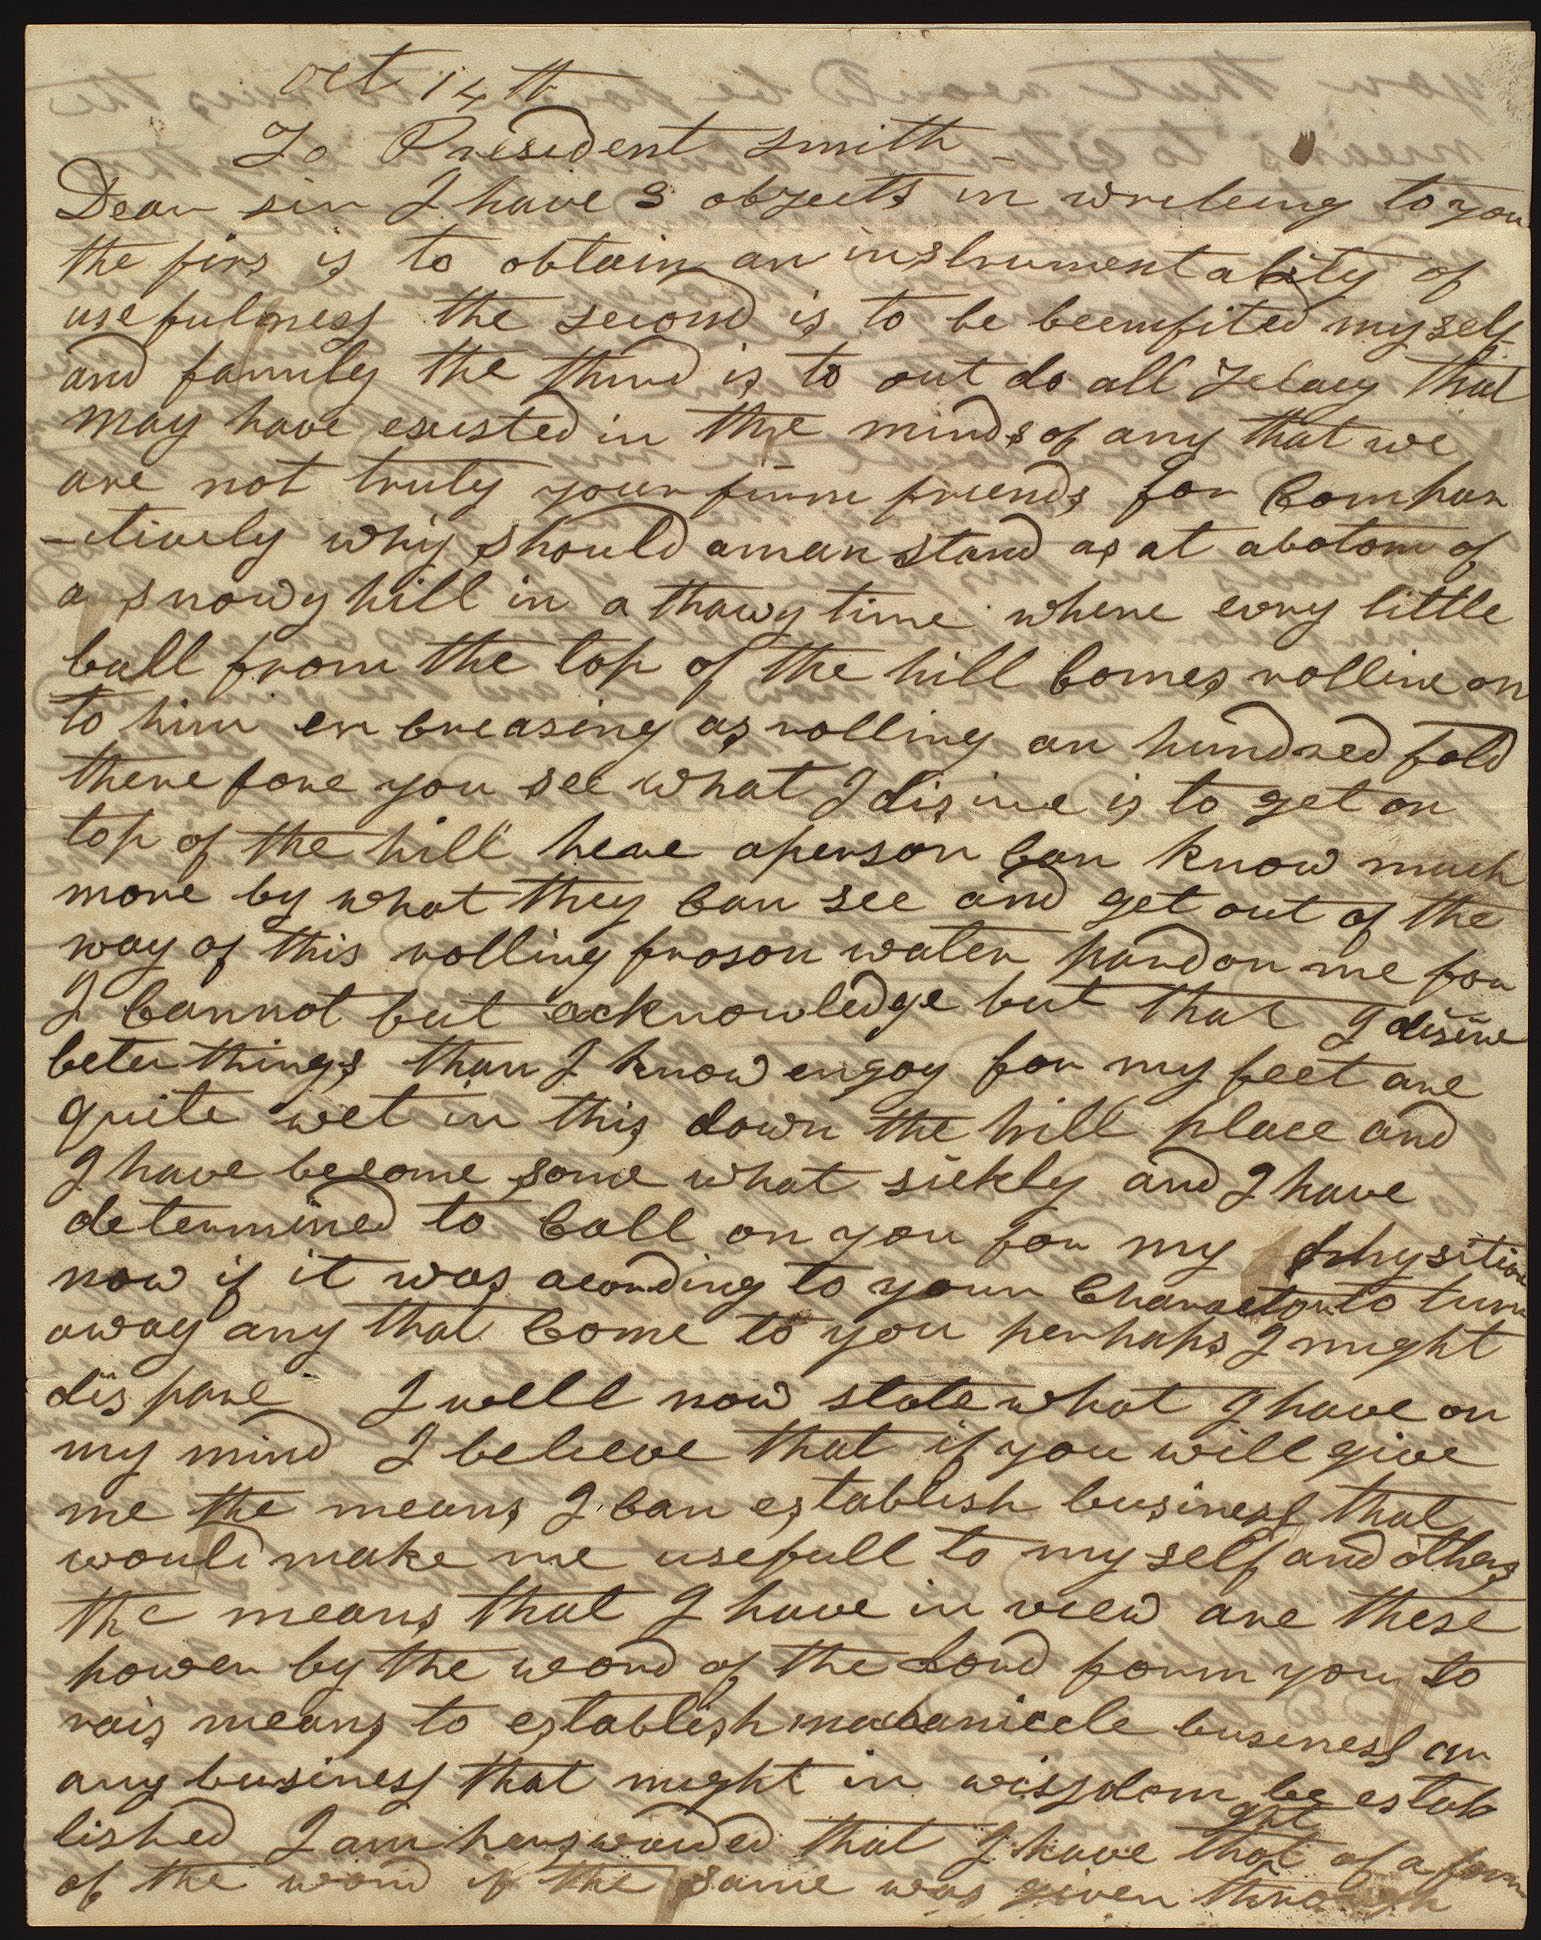 Oct 14th
To President Smith
Dear sir I have 3 objects in writeing to you
the firs is to obtain an instrumentality of
usefulness the second is to be beenifited myself
and family the third is to out do all Jelacy that
may have existed in the minds of any that we
are not truly your firm friends for Compar
-itively why should a man stand as at a botom of
a snowy hill in a thawy time where evry little
ball from the top of the hill Comes rolline on
to him en creasing as rolling an hundred fold
therefore you see what I disire is to get on
top of the hill heare a person Can know much
more by what they Can see and get out of the
way of this rolling froson water pardon me for
I Cannot but acknowledge but that I disire
beter things than I know enjoy for my feet are
quite wet in this down the hill place and
I have become some what sickly and I have
determined to Call on you for my physition
now if it was acording to your Character to turn
away any that Come to you perhaps I might
dispare I well now state what I have on
my mind I beleeve that if you will give
me the means I Can establish business that
would make me usefull to my self and others
the means that I have in view are these
power by the word of the Lord form you to
rais means to establish mechanicele buseness or
any business that might in wissdom be estab
lished I am perswaded that I have that of a form
of the word if the same was given through